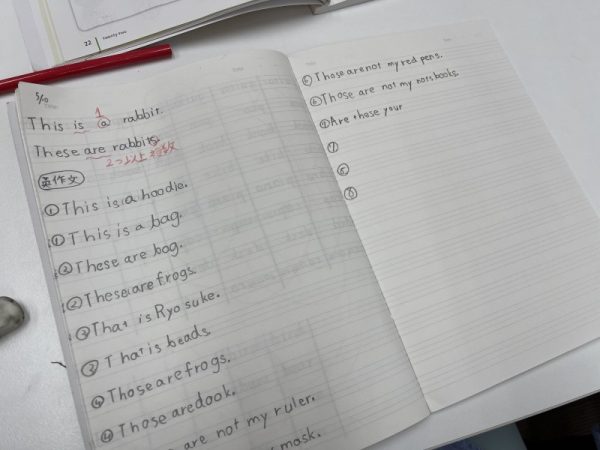 22 twenty two
5/10
1
This is a rabbit.
These are rabbits
2つ以上 複数
英作文
① This is a hoodie.
① This is a bag.
② These are bag.
② These are frogs.
③ That is Ryosuke.
③ That is beads.
④ Those are frogs.
④ Those are dook.
are not my ruler.
mask.
⑥ Those are not my red pens.
⑥ Those are not my notebooks.
Are these your
⑦
⑧